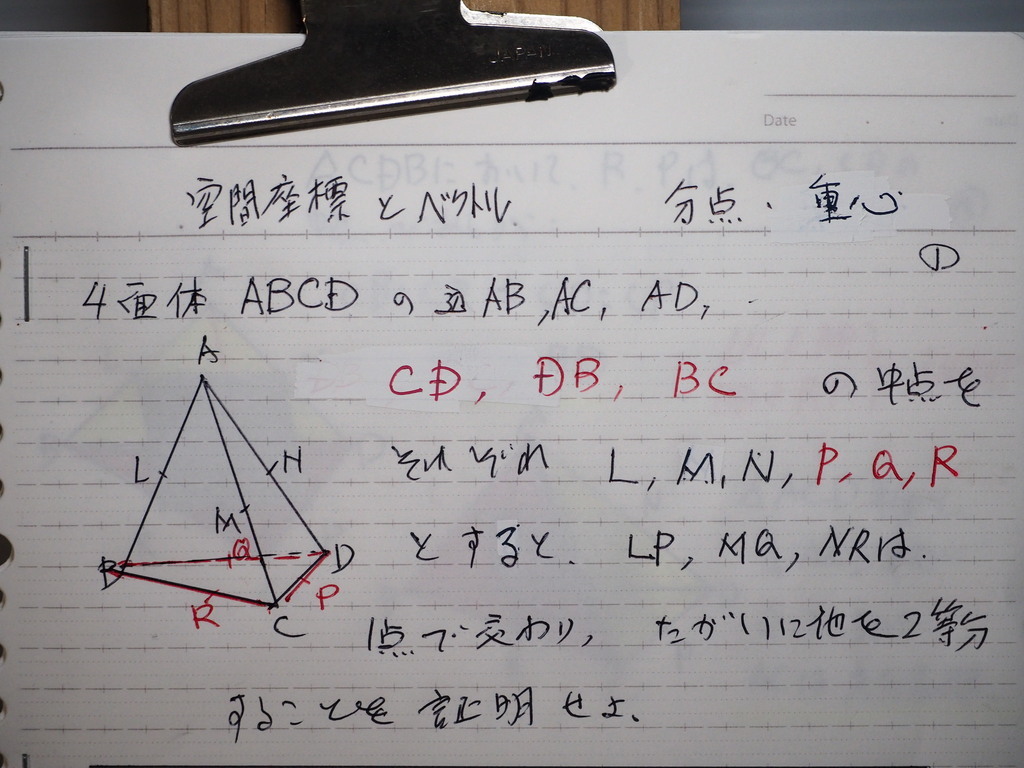 JAPAN
Date
空間座標とベクトル 分点・重心
①
4面体 ABCDの辺AB,AC,AD,
CD,DB,BC の中点を
それぞれ L,M,N,P,Q,R
とすると、LP,MQ,NRは、
1点で交わり、たがいに他を2等分
することを証明せよ。
A
L
N
M
Q
B
D
R
P
C